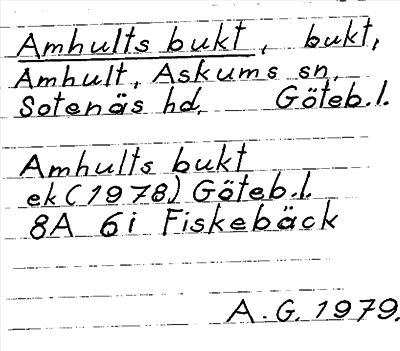 Amhults bukt, bukt,
Amhult, Askums sn,
Sotenäs hd, Göteb.l.
Amhults bukt
ek (1978) Göteb.l.
8A 6i Fiskebäck
A.G. 1979.